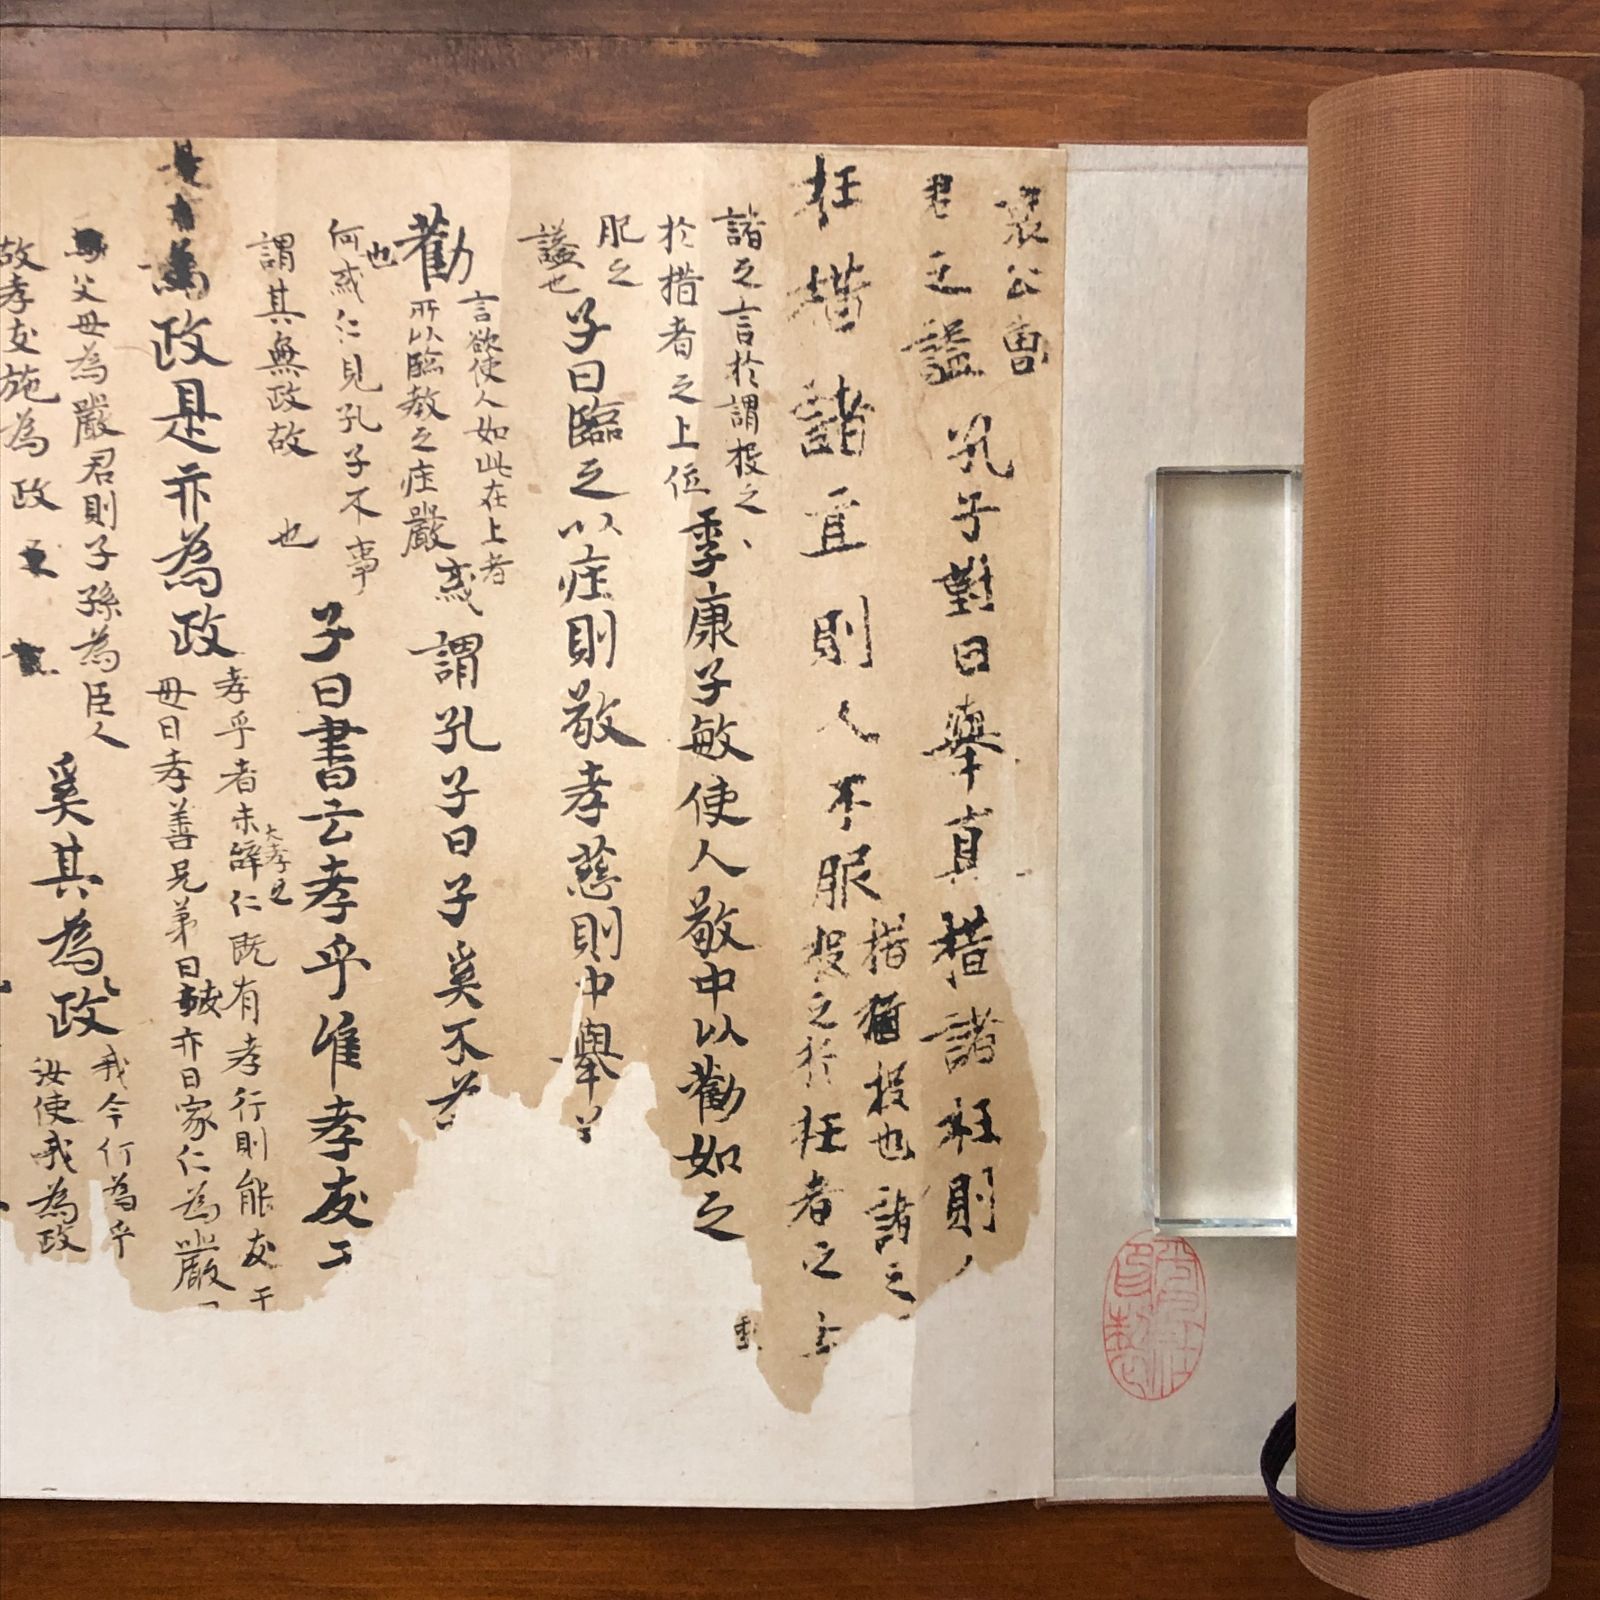 哀公魯
君之謚孔子對曰舉直措諸枉則
枉措諸直則人不服
措猶投也諸之
投之於枉者之上
諸之言於謂投之
於措者之上位
季康子敏使人敬中以勸如之
服之
謚也
子曰臨之以庄則敬孝慈則中舉
勸
言欲使人如此在上者
所以臨教之庄嚴
或謂孔子曰子奚不
何或仁見孔子不事
也
謂其無政故
也
子曰書云孝乎惟孝友
是有為政是亦為政
孝乎者未辭仁既有孝行則能友于
大孝之
毋曰孝善兄弟曰友亦曰家仁為嚴
父母為嚴君則子孫為臣人
故孝友施為政
奚其為政
我今何為乎
汝使我為政